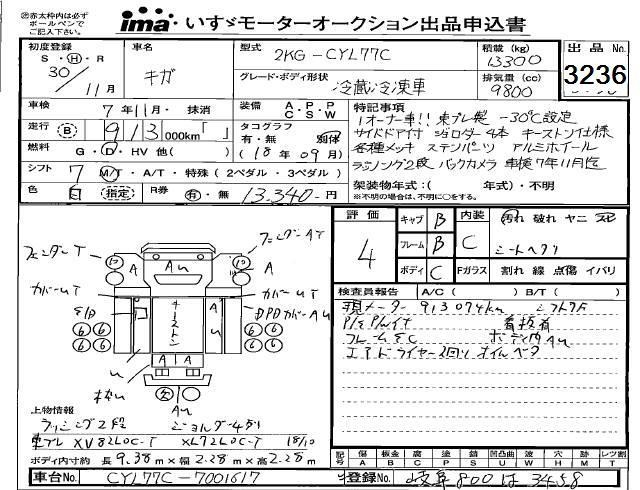 ㊟赤太枠内は必ずボールペンでご記入下さい。
ima いすゞモーターオークション出品申込書
初度登録 S・H・R 30/11月
車名 ギガ
型式 2KG-CYL77C
積載(kg) 13300
出品No. 3236
グレード・ボディ形状 冷蔵冷凍車
排気量(cc) 9800
車検 7年11月・抹消
装備 A・P・P C・S・W
走行 B 913,000km「 」
タコグラフ 有・無 別体 (18年09月)
燃料 G・D・HV 他( )
シフト 7 M/T・A/T・特殊(2ペダル・3ペダル)
色 白 (指定)
R券 有・無 13.340-円
特記事項
1オーナー車!! 東プレ製 -30℃設定
サイドドア付 ジョロダー4本 キーストン仕様
各種メッキ ステンパーツ アルミホイール
ラッシング2段 バックカメラ 車検7年11月迄
架装物年式:( 年式)・不明
※不明の場合は、不明に○をする。
評価 4
キャブ B
フレーム B
ボディ C
内装 C
汚れ 破れ ヤニ スレ
シートヘタリ
Fガラス 割れ 線 点傷 イバリ
検査員報告 A/C( ) B/T( )
現メーター 913074km シフト7F
P/S P/W付 看板有
フレームSC ボディ内Au
エアドライヤー2回り オイルベタ
フェンダーAT
フェンダーAT
カバーuT
カバーuT
DPDカバーAu
キーストン
A
A
Au
上物情報
ラッシング2段 ジョルダー4列
東プレ XV82LOC-T XL72LOC-T 18/10
ボディ内寸約 長 9.38m×幅 2.28m×高 2.28m
記号 傷 A 板金 B 腐 C 塗 P 錆 S 凹凸曲 U 波 W 穴 H 跡 M レツ割 T
車台No. CYL77C-7001617
登録No. 岐阜 800 は 3458